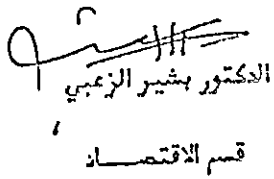 الدكتور بشير الزعبي
قسم الاقتصاد